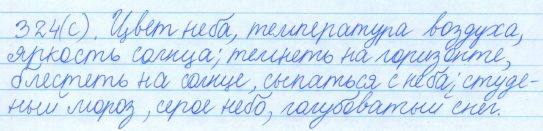 324(с). Цвет неба, температура воздуха,
яркость солнца; темнеть на горизонте,
блестеть на солнце, сыпаться с неба; студе-
ный мороз, серое небо, голубоватый снег.